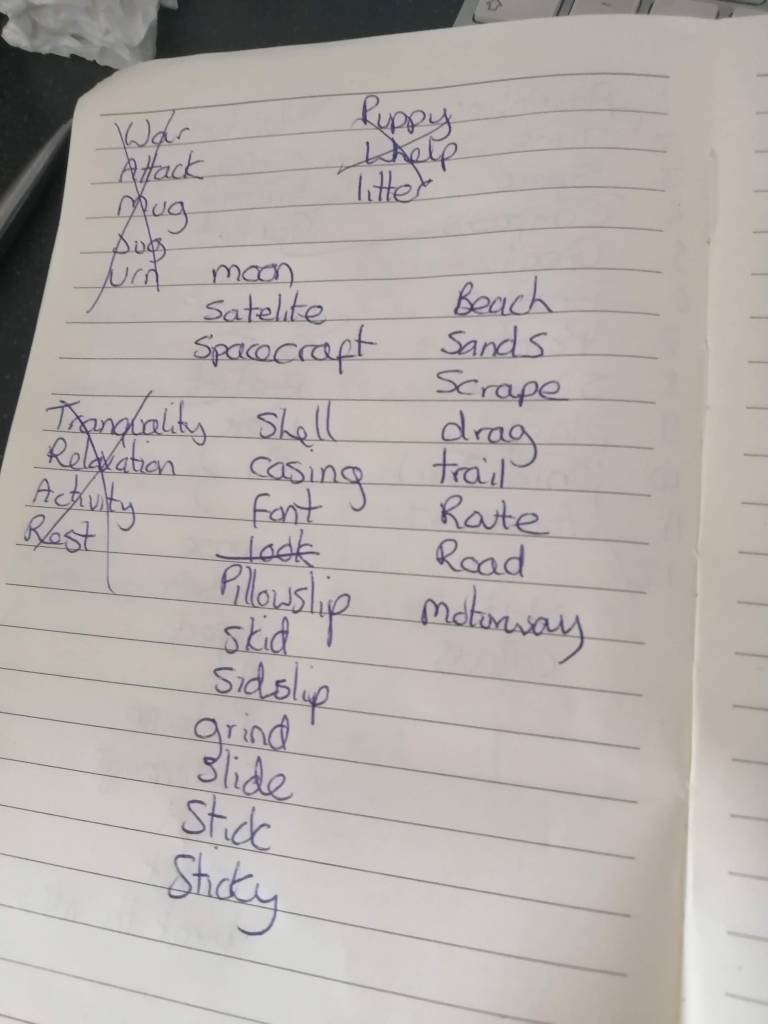 War
Attack
Mug
Urn
Puppy
Whelp
litter
moon
Satelite
Spacecraft
Beach
Sands
Scrape
drag
trail
Rate
Road
motorway
Tranquality
Relaxation
Activity
Rest
Shell
casing
Font
Pillowslip
Skid
Sidslip
grind
Slide
Stick
Sticky